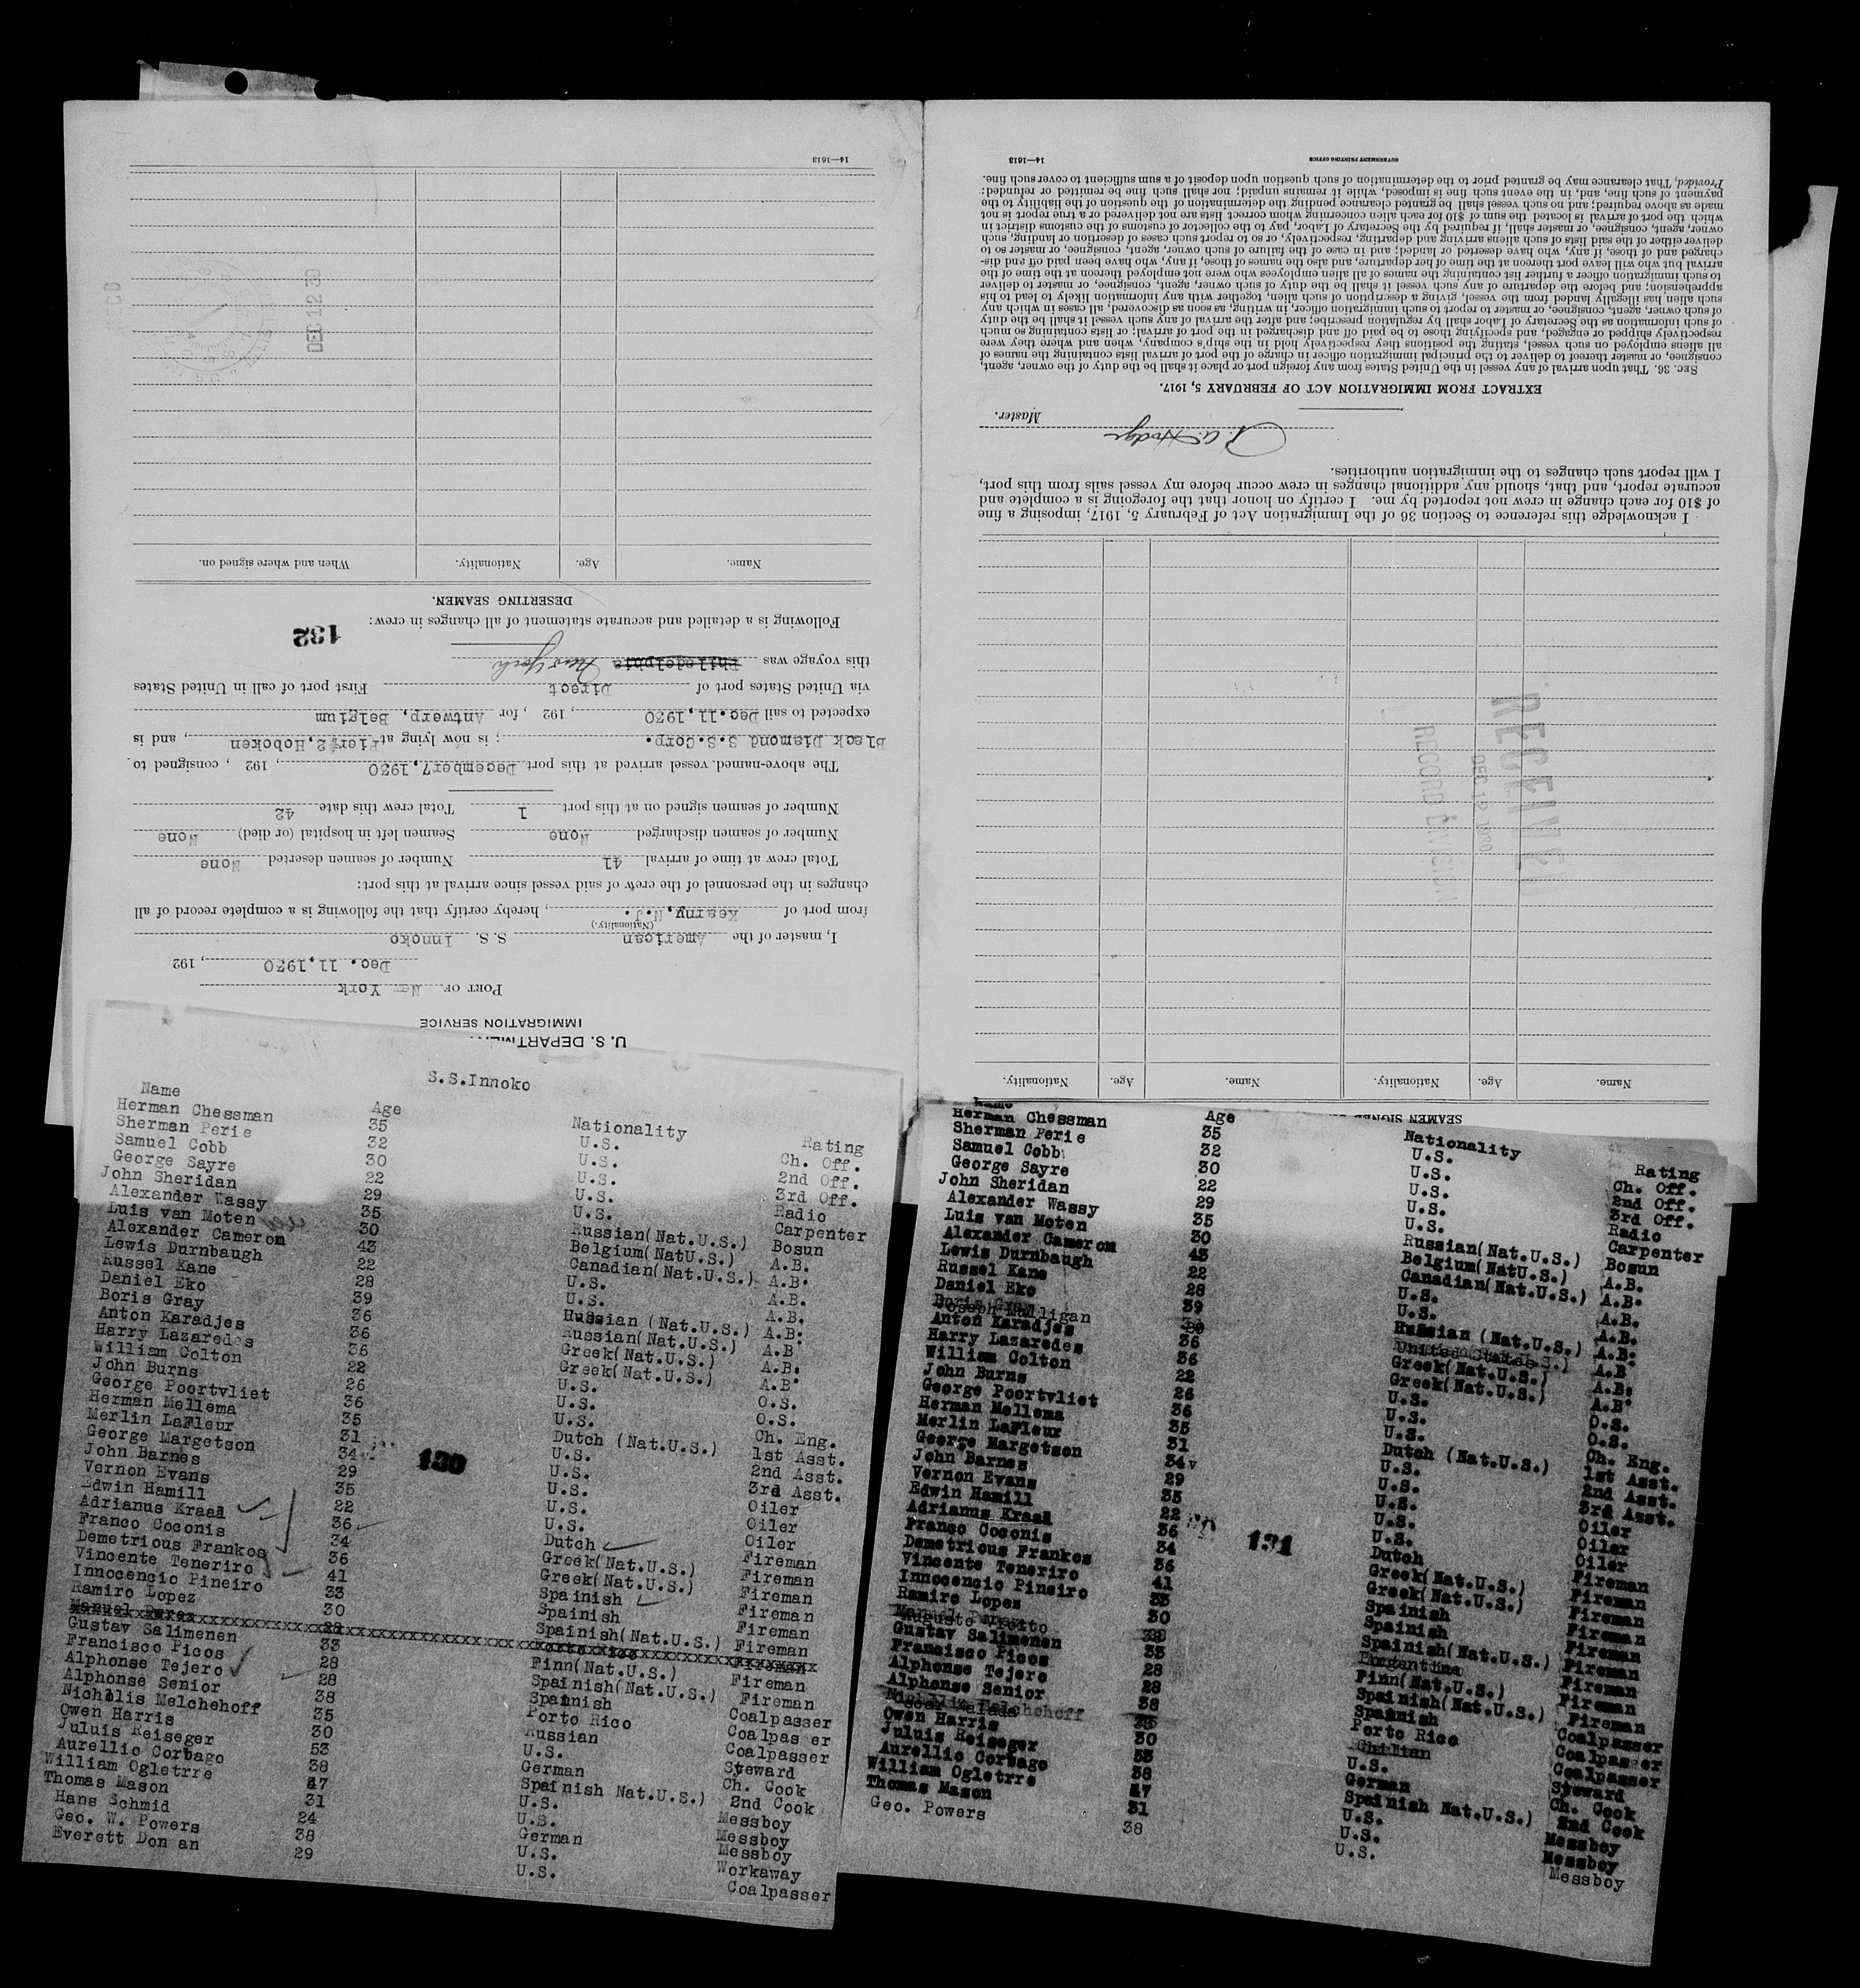 U. S. DEPARTM
IMMIGRATION SERVICE
PORT OF New York
Dec. 11,1930, 192
I, master of the American S. S. Innoko
(Nationality.)
from port of Kearny,N.J., hereby certify that the following is a complete record of all
changes in the personnel of the crew of said vessel since arrival at this port:
Total crew at time of arrival 41 Number of seamen deserted None
Number of seamen discharged None Seamen left in hospital (or died) None
Number of seamen signed on at this port 1 Total crew this date 42
The above-named vessel arrived at this port December7,1930, 192 , consigned to
Black Diamond S.S.Corp. ; is now lying at Pier#2,Hoboken, and is
expected to sail Dec.11,1930, 192 , for Antwerp, Belgium
via United States port of Direct First port of call in United States
this voyage was Philedelphia New York
132
Following is a detailed and accurate statement of all changes in crew:
DESERTING SEAMEN.
Name. Age. Nationality. When and where signed on.
DEC 12 30
REC'D
14—1613
SEAMEN SIGNED
Name. Age. Nationality. Name. Age. Nationality.
RECEIVED
DEC 12 1930
RECORD DIVISION
I acknowledge this reference to Section 36 of the Immigration Act of February 5, 1917, imposing a fine
of $10 for each change in crew not reported by me. I certify on honor that the foregoing is a complete and
accurate report, and that, should any additional changes in crew occur before my vessel sails from this port,
I will report such changes to the immigration authorities.
Hodge
Master.
EXTRACT FROM IMMIGRATION ACT OF FEBRUARY 5, 1917.
SEC. 36. That upon arrival of any vessel in the United States from any foreign port or place it shall be the duty of the owner, agent,
consignee, or master thereof to deliver to the principal immigration officer in charge of the port of arrival lists containing the names of
all aliens employed on such vessel, stating the positions they respectively hold in the ship's company, when and where they were
respectively shipped or engaged, and specifying those to be paid off and discharged in the port of arrival; or lists containing so much
of such information as the Secretary of Labor shall by regulation prescribe; and after the arrival of any such vessel it shall be the duty
of such owner, agent, consignee, or master to report to such immigration officer, in writing, as soon as discovered, all cases in which any
such alien has illegally landed from the vessel, giving a description of such alien, together with any information likely to lead to his
apprehension; and before the departure of any such vessel it shall be the duty of such owner, agent, consignee, or master to deliver
to such immigration officer a further list containing the names of all alien employees who were not employed thereon at the time of the
arrival but who will leave port thereon at the time of her departure, and also the names of those, if any, who have been paid off and dis-
charged and of those, if any, who have deserted or landed; and in case of the failure of such owner, agent, consignee, or master so to
deliver either of the said lists of such aliens arriving and departing, respectively, or so to report such cases of desertion or landing, such
owner, agent, consignee, or master shall, if required by the Secretary of Labor, pay to the collector of customs of the customs district in
which the port of arrival is located the sum of $10 for each alien concerning whom correct lists are not delivered or a true report is not
made as above required; and no such vessel shall be granted clearance pending the determination of the question of the liability to the
payment of such fine, and, in the event such fine is imposed, while it remains unpaid; nor shall such fine be remitted or refunded:
Provided, That clearance may be granted prior to the determination of such question upon deposit of a sum sufficient to cover such fine.
GOVERNMENT PRINTING OFFICE 14—1613
S.S.Innoko
Name Age Nationality Rating
Herman Chessman 35 U.S. Ch. Off.
Sherman Perie 32 U.S. 2nd Off.
Samuel Cobb 30 U.S. 3rd Off.
George Sayre 22 U.S. Radio
John Sheridan 29 U.S. Carpenter
Alexander Wassy 35 Russian(Nat.U.S.) Bosun
Luis van Moten 30 Belgium(NatU.S.) A.B.
Alexander Cameron 43 Canadian(Nat.U.S.) A.B.
Lewis Durnbaugh 22 U.S. A.B.
Russel Kane 28 U.S. A.B.
Daniel Eko 39 Russian (Nat.U.S.) A.B.
Boris Gray 36 Russian(Nat.U.S.) A.B
Anton Karadjes 36 Greek(Nat.U.S.) A.B.
Harry Lazaredes 36 Greek(Nat.U.S.) A.B
William Colton 22 U.S. O.S.
John Burns 26 U.S. O.S.
George Poortvliet 36 U.S. Ch. Eng.
Herman Mellema 35 Dutch (Nat.U.S.) 1st Asst.
Merlin LaFleur 31 U.S. 2nd Asst.
George Margetson 34 U.S. 3rd Asst.
John Barnes 29 U.S. Oiler
Vernon Evans 35 U.S. Oiler
Edwin Hamill 22 U.S. Oiler
Adrianus Kraal 36 Dutch Fireman
Franco Coconis 34 Greek(Nat.U.S.) Fireman
Demetrious Frankos 36 Greek(Nat.U.S.) Fireman
Vincente Teneriro 41 Spainish Fireman
Innocencio Pineiro 33 Spainish Fireman
Ramiro Lopez 30 Spainish(Nat.U.S.) Fireman
Manuel Perez Porto Rico Fireman
Gustav Salimenen 33 Finn(Nat.U.S.) Fireman
Francisco Picos 28 Spainish(Nat.U.S.) Fireman
Alphonse Tejero 28 Spainish Coalpasser
Alphonse Senior 38 Porto Rico Coalpas er
Nicholis Melchehoff 35 Russian Coalpasser
Owen Harris 30 U.S. Steward
Juluis Reiseger 53 German Ch. Cook
Aurellio Corbago 38 Spainish Nat.U.S.) 2nd Cook
William Ogletrre 47 U.S. Messboy
Thomas Mason 31 U.S. Messboy
Hans Schmid 24 German Messboy
Geo. W. Powers 38 U.S. Workaway
Everett Don an 29 U.S. Coalpasser
130
Name Age Nationality Rating
Herman Chessman 35 U.S. Ch. Off.
Sherman Perie 32 U.S. 2nd Off.
Samuel Cobb 30 U.S. 3rd Off.
George Sayre 22 U.S. Radio
John Sheridan 29 U.S. Carpenter
Alexander Wassy 35 Russian(Nat.U.S.) Bosun
Luis van Moten 30 Belgium(NatU.S.) A.B.
Alexander Cameron 43 Canadian(Nat.U.S.) A.B.
Lewis Durnbaugh 22 U.S. A.B.
Russel Kane 28 U.S. A.B.
Daniel Eko 39 Russian (Nat.U.S.) A.B.
Joseph Mulligan United States A.B
Anton Karadjes 36 Greek(Nat.U.S.) A.B.
Harry Lazaredes 36 Greek(Nat.U.S.) A.B
William Colton 22 U.S. O.S.
John Burns 26 U.S. O.S.
George Poortvliet 36 U.S. Ch. Eng.
Herman Mellema 35 Dutch (Nat.U.S.) 1st Asst.
Merlin LaFleur 31 U.S. 2nd Asst.
George Margetson 34 U.S. 3rd Asst.
John Barnes 29 U.S. Oiler
Vernon Evans 35 U.S. Oiler
Edwin Hamill 22 U.S. Oiler
Adrianus Kraal 36 Dutch Fireman
Franco Coconis 34 Greek(Nat.U.S.) Fireman
Demetrious Frankos 36 Greek(Nat.U.S.) Fireman
Vincente Teneriro 41 Spainish Fireman
Innocencio Pineiro 33 Spainish Fireman
Ramiro Lopez 30 Spainish(Nat.U.S.) Fireman
Auguste Argentine Fireman
Gustav Salimenen 33 Finn(Nat.U.S.) Fireman
Francisco Picos 28 Spainish(Nat.U.S.) Fireman
Alphonse Tejero 28 Spainish Coalpasser
Alphonse Senior 38 Porto Rico Coalpas er
Chilian Coalpasser
Owen Harris 30 U.S. Steward
Juluis Reiseger 53 German Ch. Cook
Aurellio Corbago 38 Spainish Nat.U.S.) 2nd Cook
William Ogletrre 47 U.S. Messboy
Thomas Mason 31 U.S. Messboy
Geo. Powers 38 U.S. Messboy
131